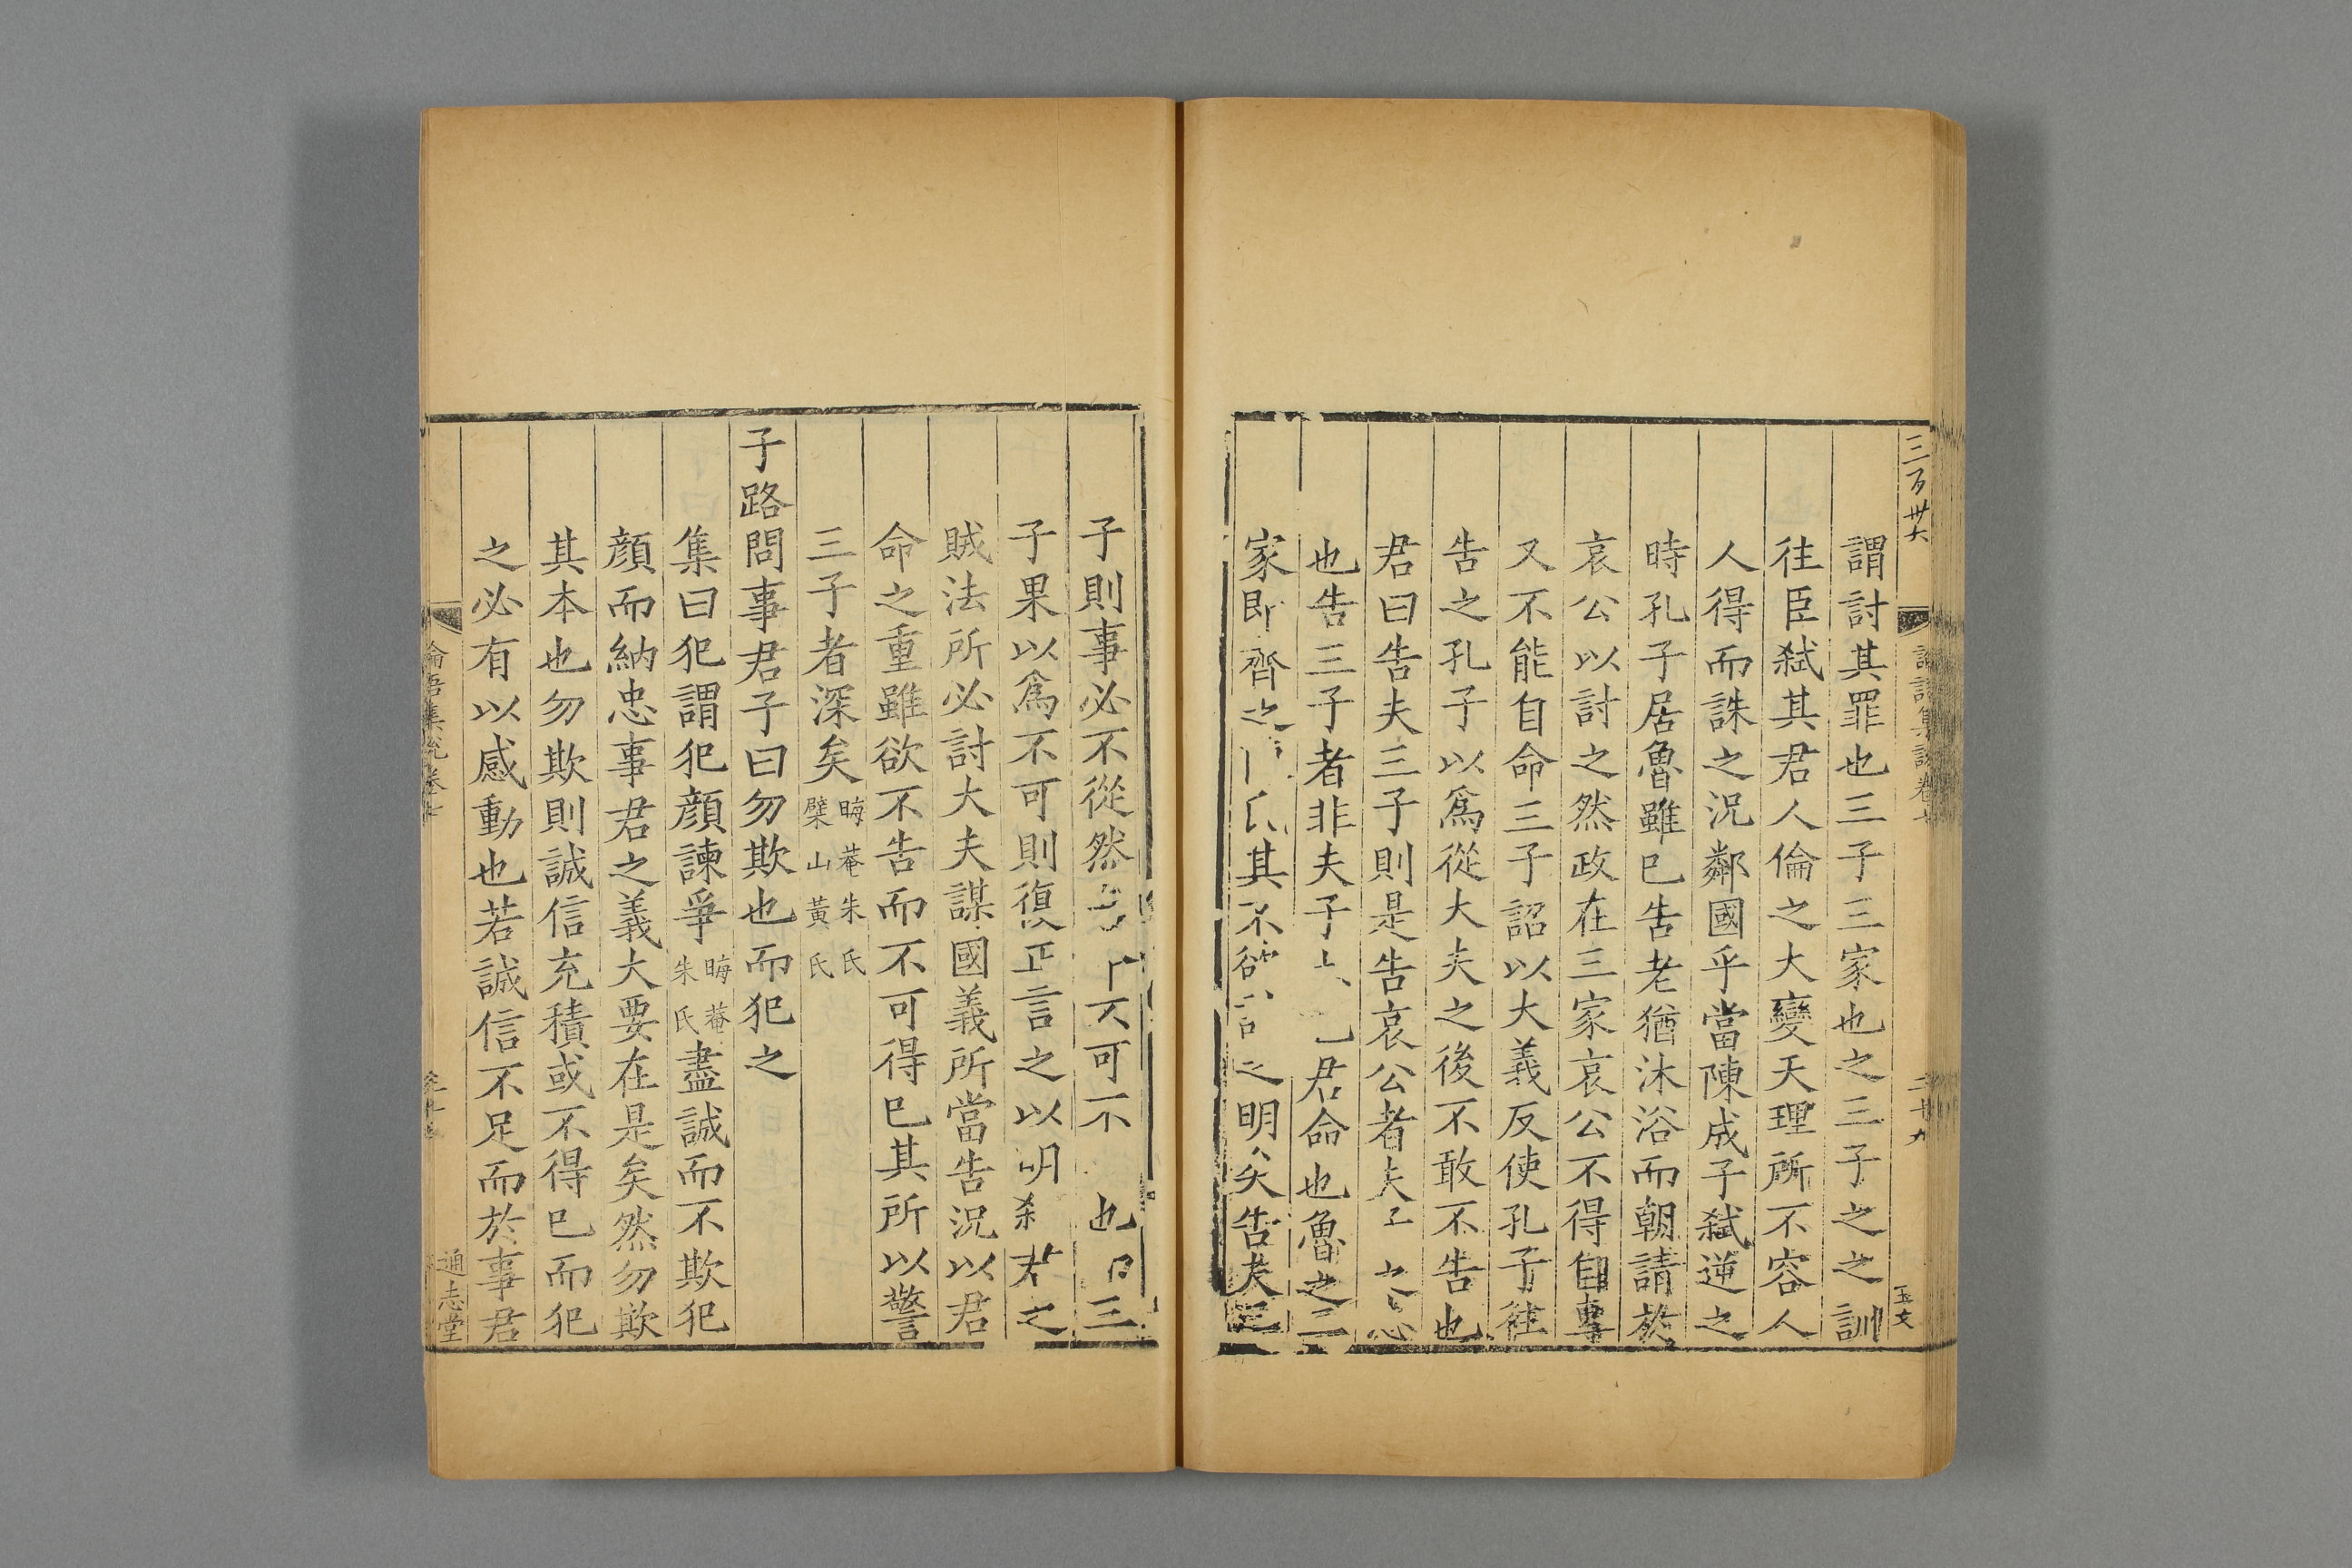 三百卅六
二十九
玉文
謂討其罪也三子三家也之三子之之訓
徃臣弑其君人倫之大變天理所不容人
人得而誅之況鄰國乎當陳成子弑逆之
時孔子居魯雖已告老猶沐浴而朝請於
哀公以討之然政在三家哀公不得自專
又不能自命三子詔以大義反使孔子徃
告之孔子以爲從大夫之後不敢不告也
君曰告夫三子則是告哀公者夫子
也告三子者非夫子君命也魯之三
家即齊氏其不欲之明矣告夫三
子則事必不從然不可不也曰三
子果以爲不可則復正言之以明弑君之
賊法所必討大夫謀國義所當告況以君
命之重雖欲不告而不可得已其所以警
三子者深矣晦菴朱氏檗山黃氏
子路問事君子曰勿欺也而犯之
集曰犯謂犯顏諫爭晦菴朱氏盡誠而不欺犯
顏而納忠事君之義大要在是矣然勿欺
其本也勿欺則誠信充積或不得已而犯
之必有以感動也若誠信不足而於事君
論語集說卷七
通志堂